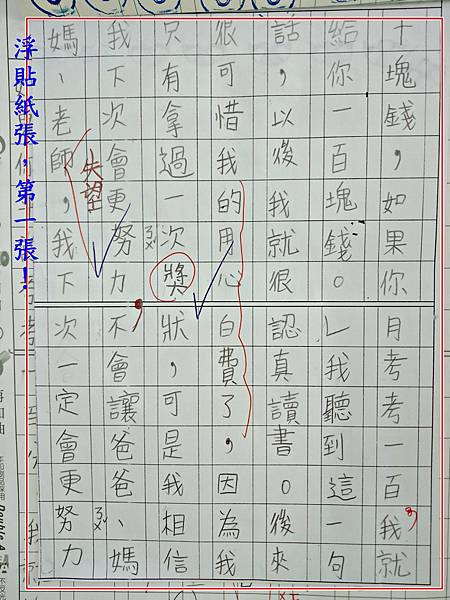 十塊錢，如果你月考考一百，我就
給你一百塊錢。」我聽到這一句
話，以後我就很認真讀書。後來
很可惜我的用心白費了，因為我
只有拿過一次獎狀，可是我相信
我下次會更努力，不會讓爸爸、媽
媽、老師，我下次一定會更努力
失望
浮貼紙張，第二張！
Double A